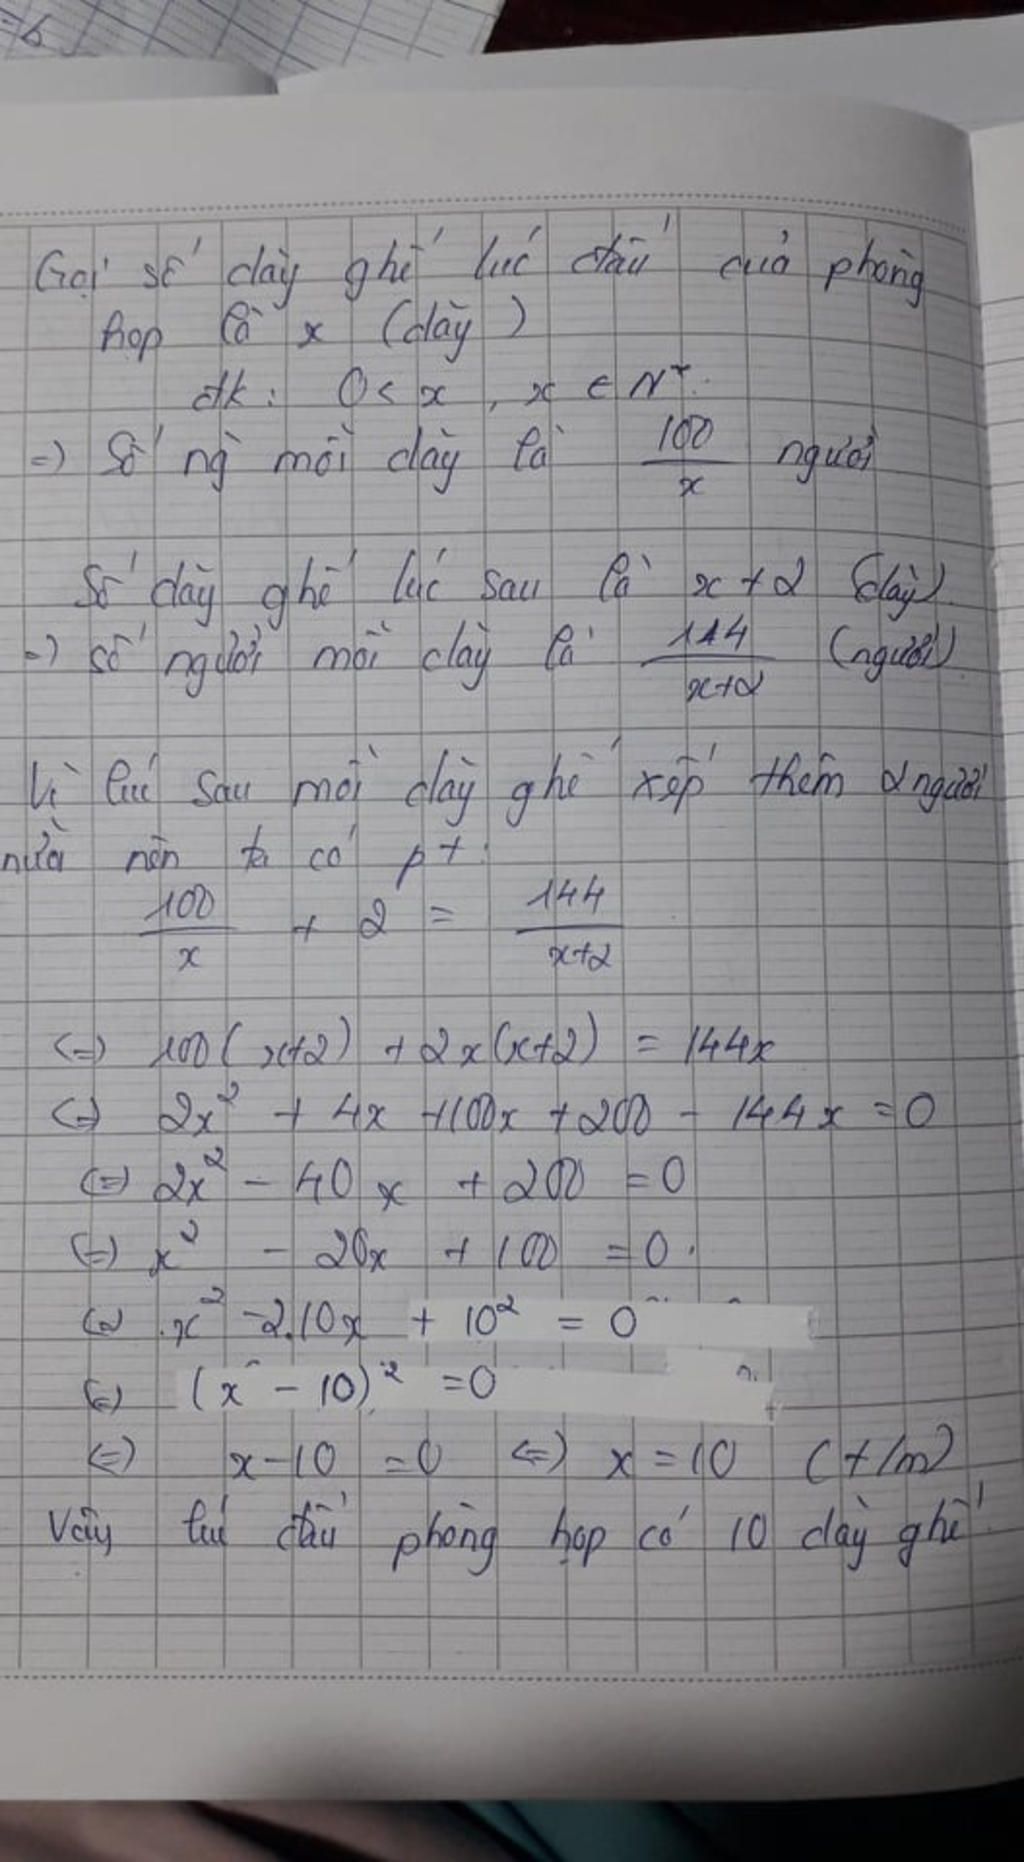 Gọi số dãy ghế lúc đầu của phòng
họp là x (dãy)
đk: 0 < x, x ∈ N*.
=) Số ng mỗi dãy là 100/x người
Số dãy ghế lúc sau là x + 2 (dãy)
=) số người mỗi dãy là 144/x+2 (người)
Vì lúc sau mỗi dãy ghế xếp thêm 2 người
nữa nên ta có pt:
100/x + 2 = 144/x+2
(=) 100(x+2) + 2x(x+2) = 144x
(=) 2x² + 4x + 100x + 200 - 144x = 0
(=) 2x² - 40x + 200 = 0
(=) x² - 20x + 100 = 0.
(=) x² - 2.10x + 10² = 0
(=) (x - 10)² = 0
(=) x - 10 = 0 (=) x = 10 (t/m)
Vậy lúc đầu phòng họp có 10 dãy ghế